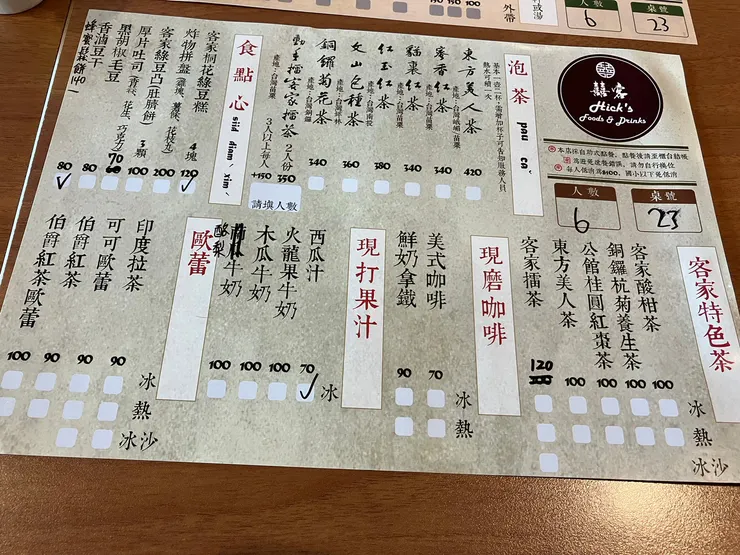 外帶
人數
6
桌號
23
囍客
Hick's
Foods & Drinks
本店採自助式點餐，點餐後請至櫃台結帳
為避免送餐錯誤，請勿自行換位
每人低消為$100，國小以下免低消
人數
6
桌號
23
泡茶 pau ca
基本一壺二杯，需增加杯子可告知服務人員
熱水可續一次
東方美人茶 產地：台灣峨嵋苗栗 420
蜜香紅茶 產地：台灣苗栗 340
貓裏紅茶 產地：台灣苗栗 340
紅玉紅茶 產地：台灣南投 380
文山包種茶 產地：台灣坪林 360
銅鑼菊花茶 產地：台灣銅鑼 340
動手擂客家擂茶 產地：台灣苗栗 2人份 350
3人以上每人 +150
請填人數
食點心 siid diam xim
客家桐花綠豆糕 4塊 120 ✓
炸物拼盤(雞塊、薯條、花枝丸) 200
客家綠豆凸(肚臍餅) 3顆 100
厚片吐司(香蒜、花生、巧克力) 70
黑胡椒毛豆 80
香滷豆干 80 ✓
140
客家特色茶
冰
熱
冰沙
客家酸柑茶 100
銅鑼杭菊養生茶 100
公館桂圓紅棗茶 100
東方美人茶 100
客家擂茶 120
現磨咖啡
冰
熱
美式咖啡 70
鮮奶拿鐵 90
現打果汁
冰
西瓜汁 70 ✓
火龍果牛奶 100
木瓜牛奶 100
酪梨牛奶 100
歐蕾
冰
熱
冰沙
印度拉茶 90
可可歐蕾 90
伯爵紅茶 90
伯爵紅茶歐蕾 100